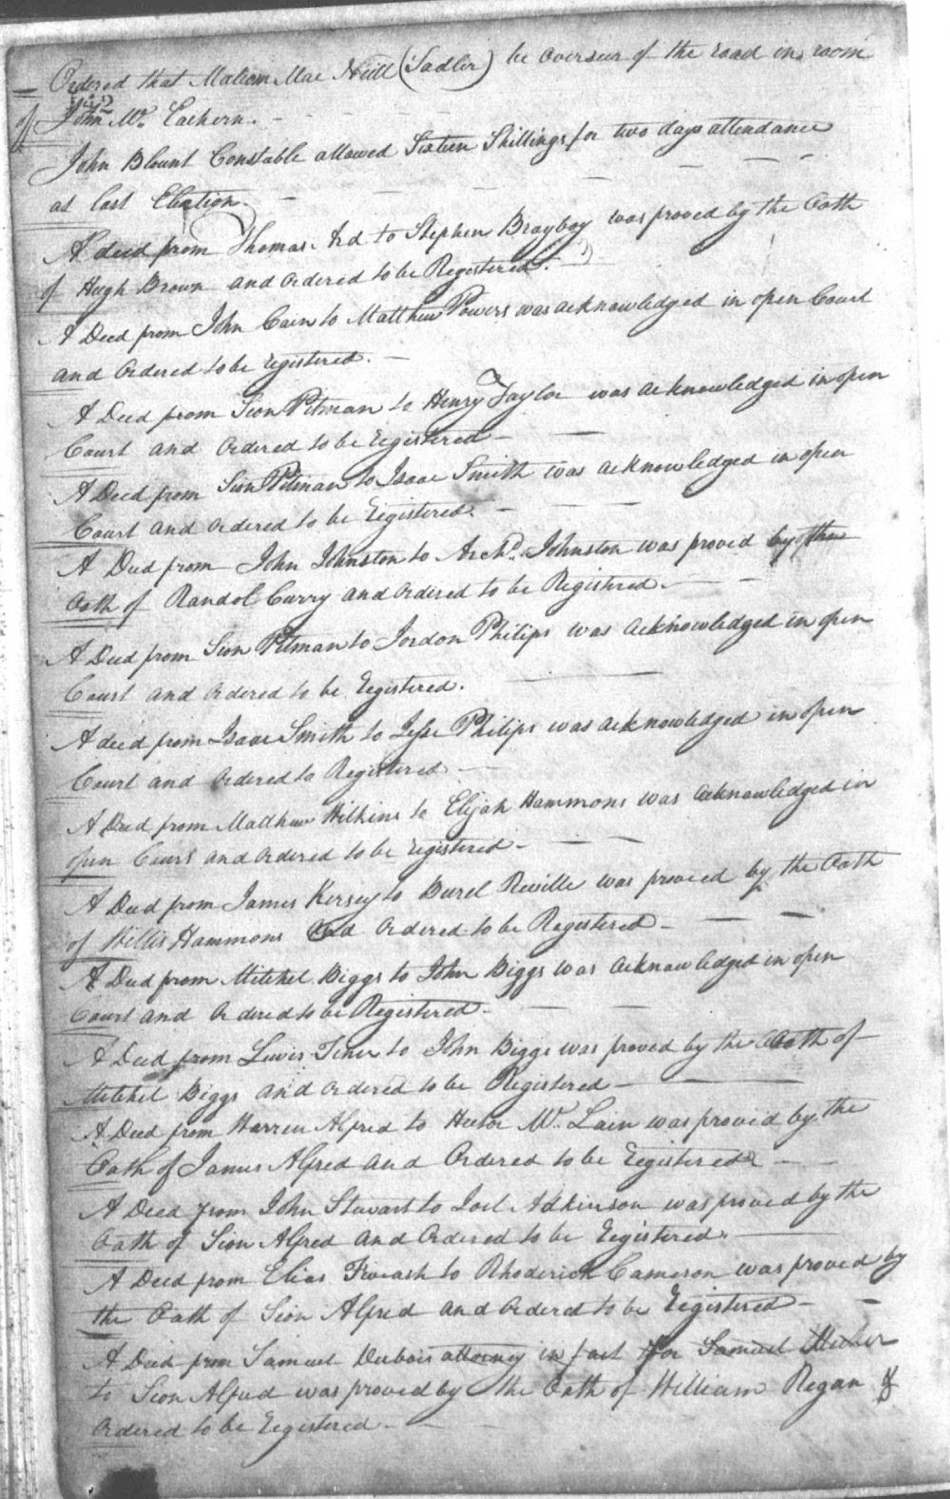 Ordered that Malcom Mac Neill (Sadler) be overseer of the road in room
of John Mc. Eachern.
John Blount Constable allowed Sixteen Shillings for two days attendance
at last Election.
A deed from Thomas Ard to Stephen Brayboy was proved by the Oath
of Hugh Brown and ordered to be Registered.
A Deed from John Cain to Matthew Powers was acknowledged in open Court
and Ordered to be registered.
A Deed from Sion Pitman to Henry Taylor was acknowledged in open
Court and ordered to be registered
A Deed from Sion Pitman to Isaac Smith was acknowledged in open
Court and ordered to be registered.
A Deed from John Johnston to Archd. Johnston was proved by the
Oath of Randol Curry and ordered to be Registered.
A Deed from Sion Pitman to Jordon Philips was acknowledged in open
Court and ordered to be registered.
A deed from Isaac Smith to Jesse Philips was acknowledged in open
Court and ordered to Registered
A Deed from Matthew Wilkins to Elijah Hammons was acknowledged in
open Court and ordered to be registered
A Deed from James Kersey to Burel Reville was proved by the Oath
of Willis Hammons and ordered to be Registered
A Deed from Mitchel Biggs to John Biggs was acknowledged in open
Court and ordered to be Registered.
A Deed from Lewis Tiner to John Biggs was proved by the Oath of
Mitchel Biggs and ordered to be Registered
A Deed from Warren Alfred to Hector Mc. Lain was proved by the
Oath of James Alfred and Ordered to be registered
A Deed from John Stewart to Joel Adkinson was proved by the
Oath of Sion Alfred and Ordered to be registered.
A Deed from Elias to Rhoderick Cameron was proved by
the Oath of Sion Alfred and ordered to be registered
A Deed from Samuel Dubois attorney in fact for Samuel
to Sion Alfred was proved by the Oath of William Regan &
ordered to be registered